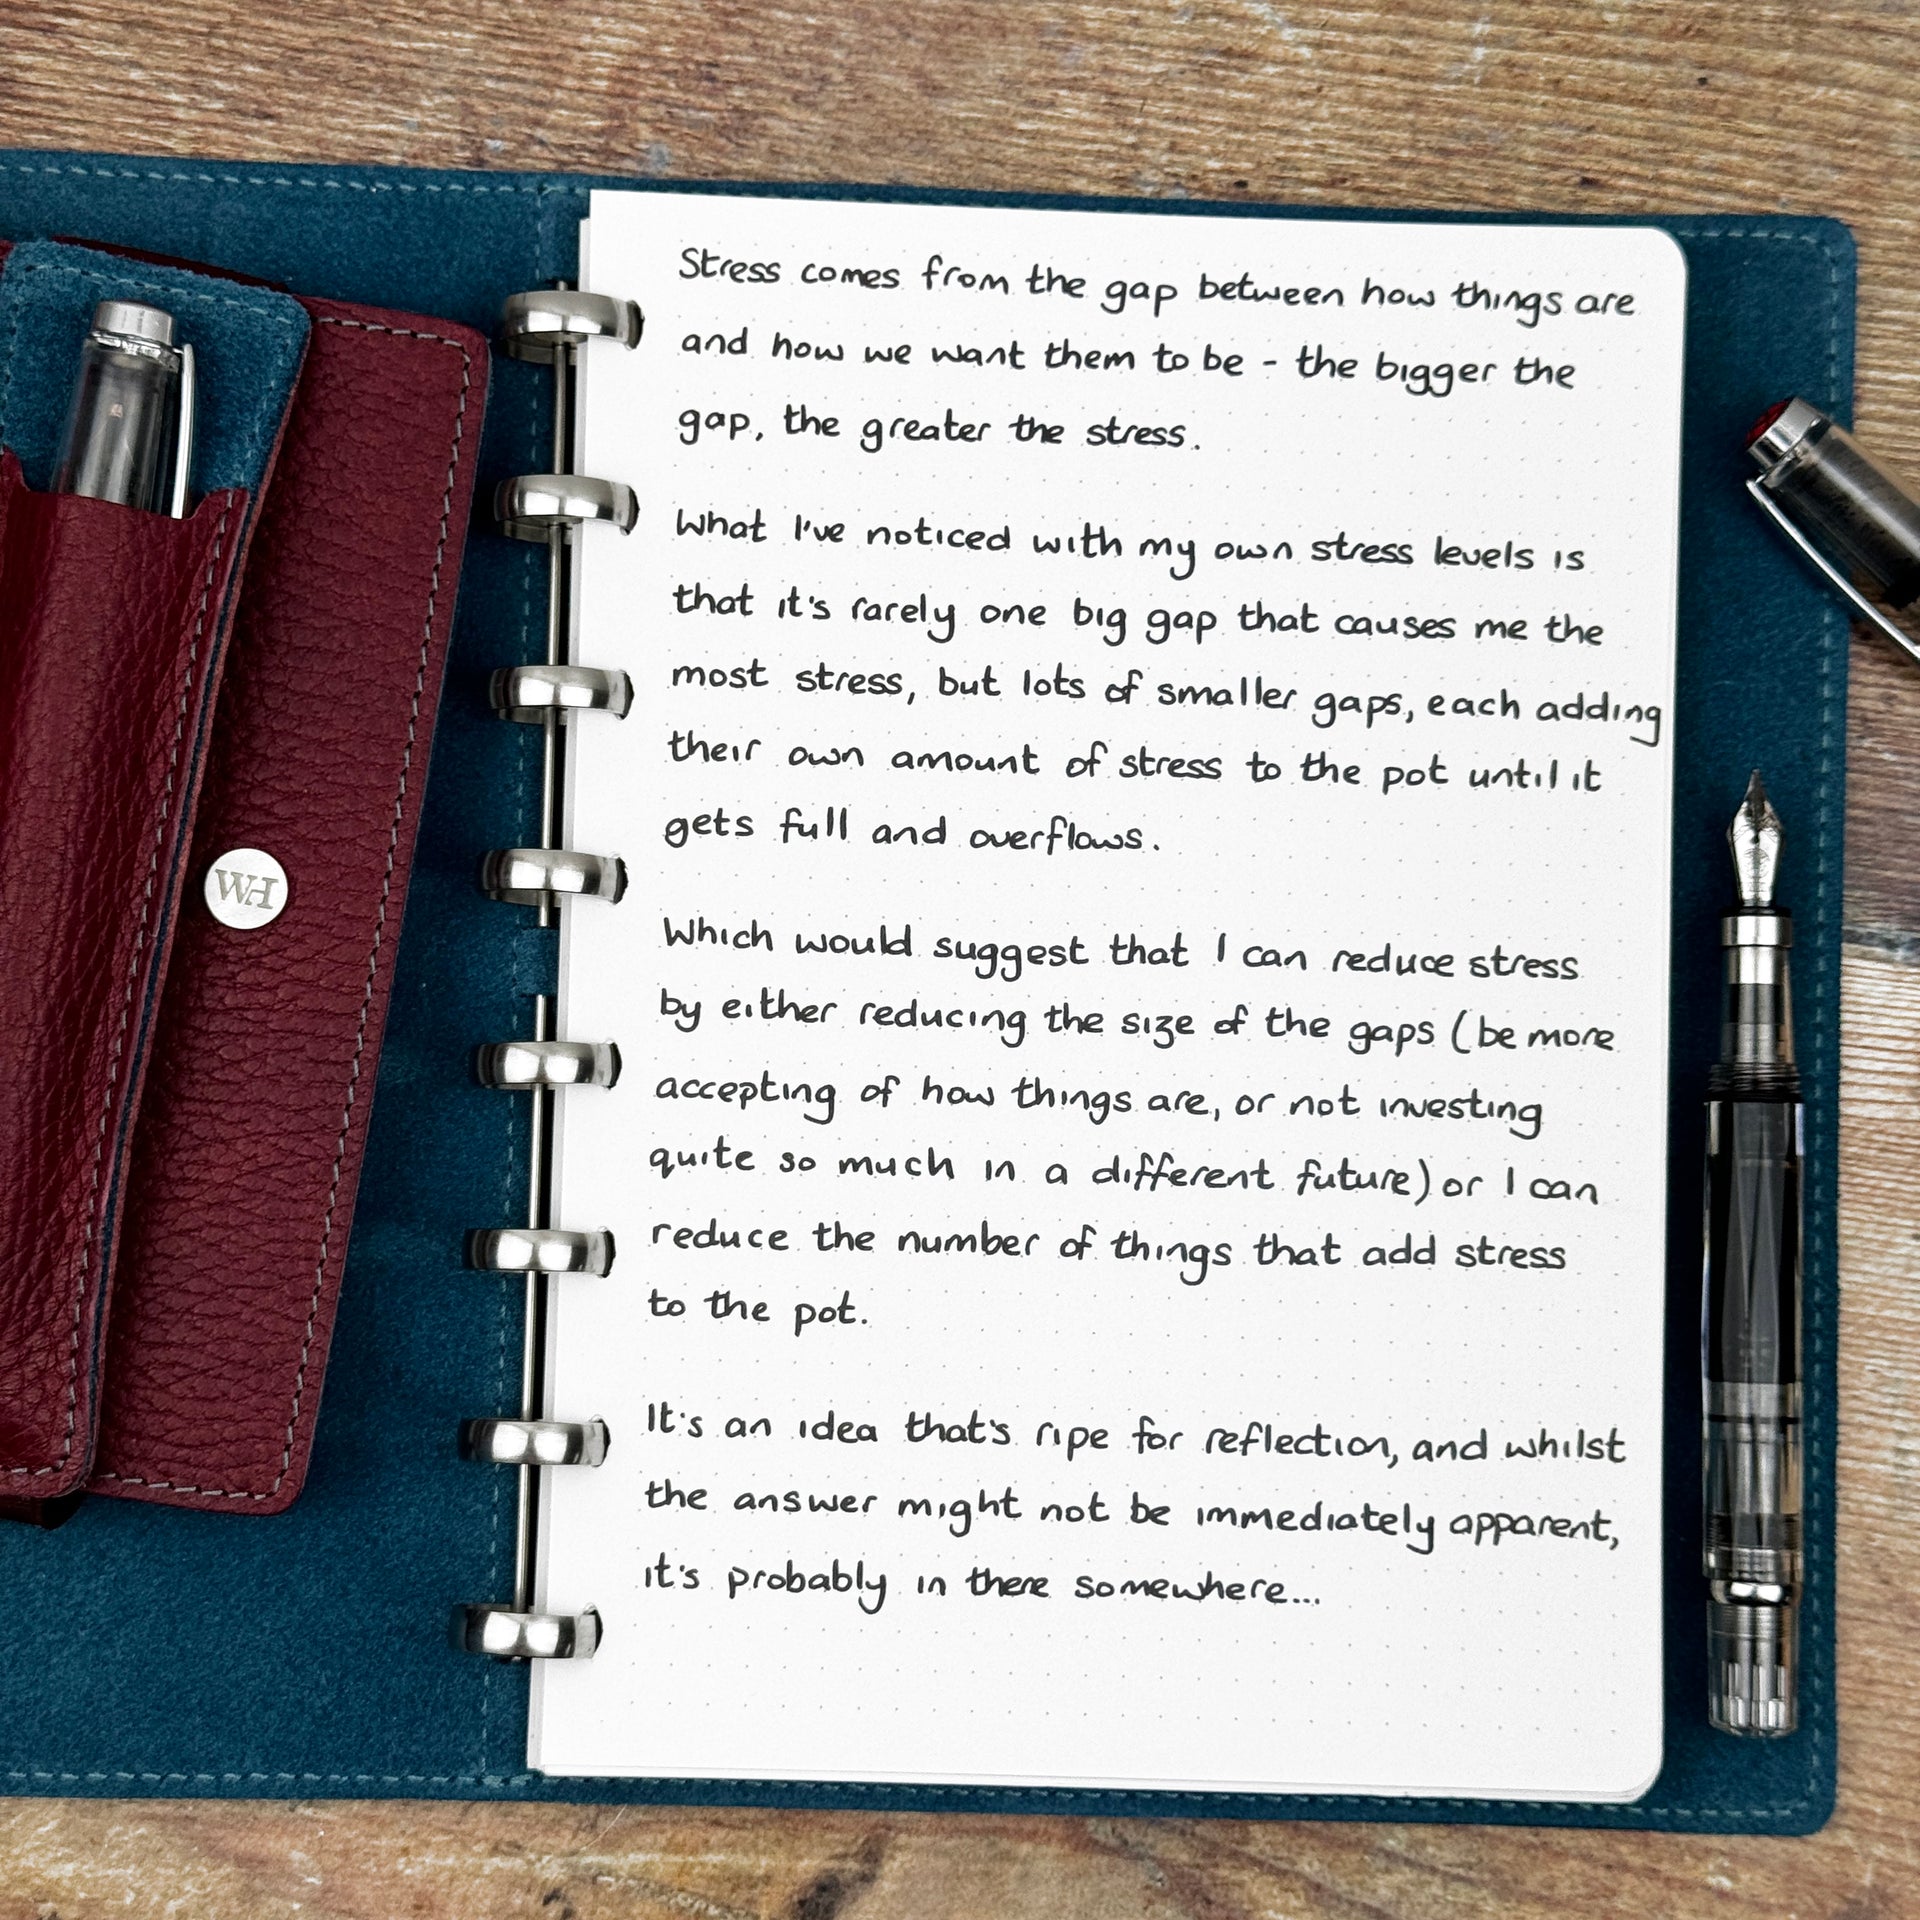 WH
Stress comes from the gap between how things are
and how we want them to be - the bigger the
gap, the greater the stress.
What I've noticed with my own stress levels is
that it's rarely one big gap that causes me the
most stress, but lots of smaller gaps, each adding
their own amount of stress to the pot until it
gets full and overflows.
Which would suggest that I can reduce stress
by either reducing the size of the gaps (be more
accepting of how things are, or not investing
quite so much in a different future) or I can
reduce the number of things that add stress
to the pot.
It's an idea that's ripe for reflection, and whilst
the answer might not be immediately apparent,
it's probably in there somewhere...